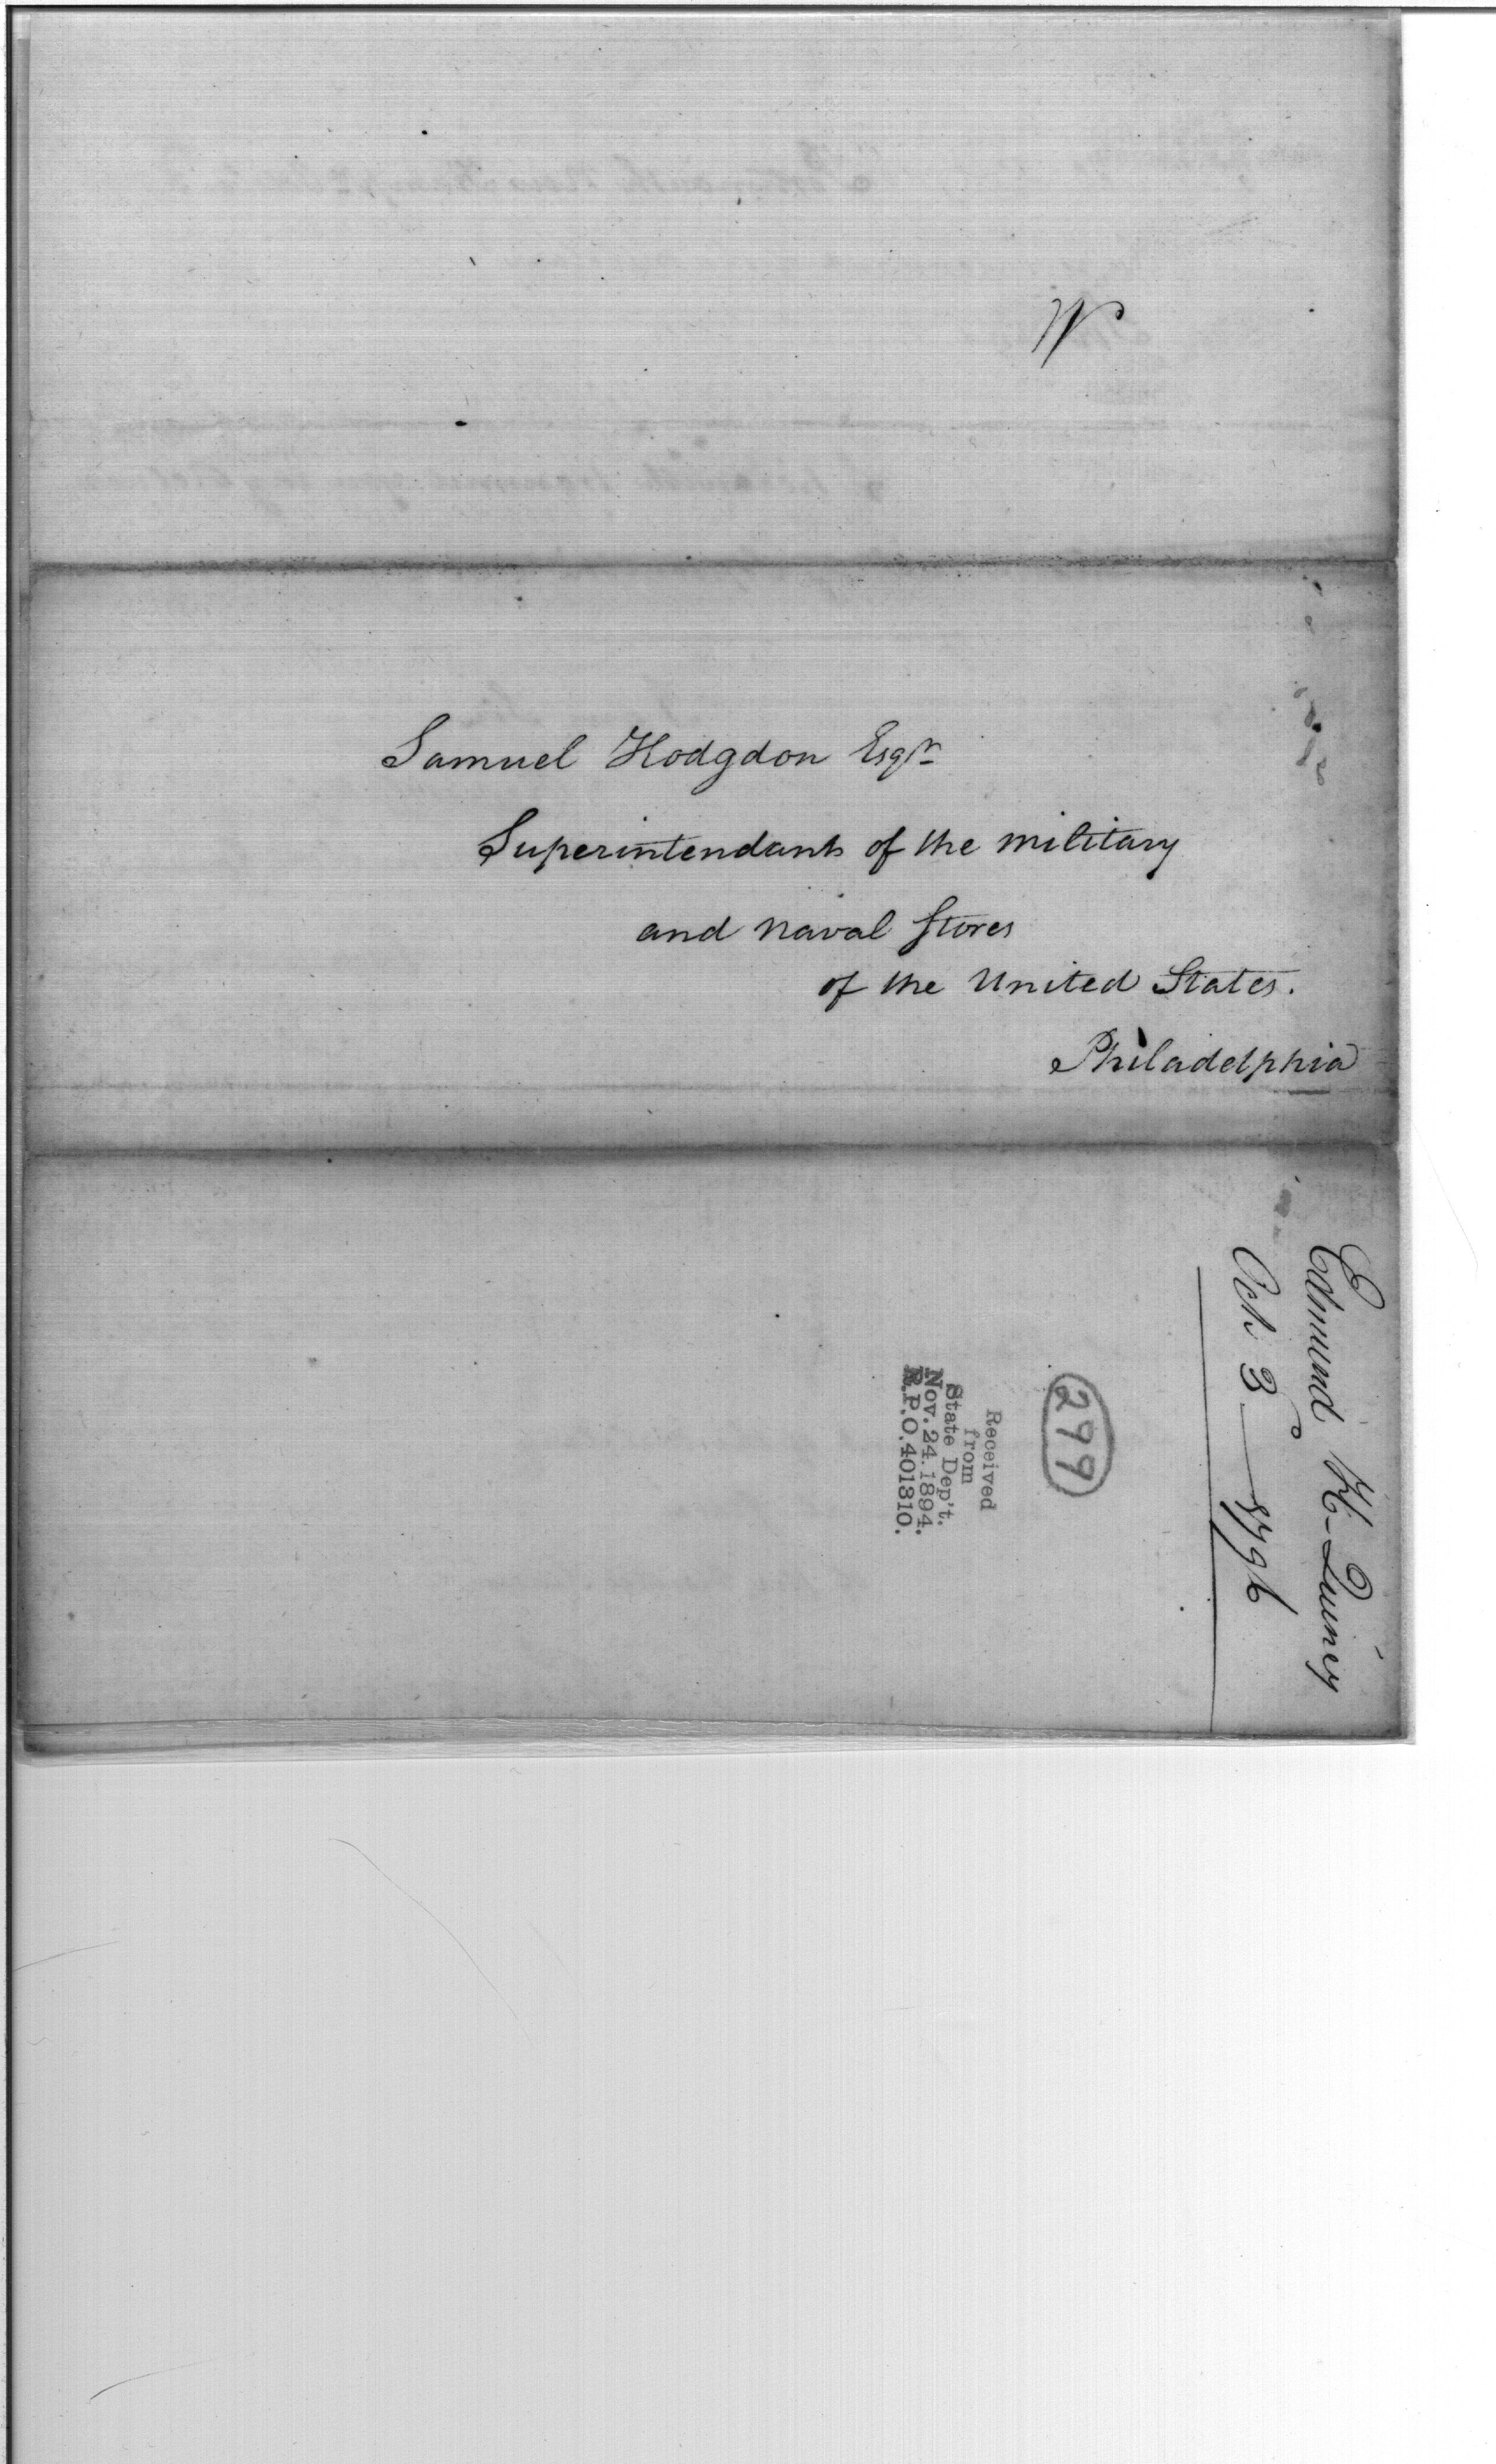 W
Samuel Hodgdon Esqr
Superintendant of the military
and naval Stores
of the United States.
Philadelphia
Edmund H. Quincy
Oct 3 1796
299
Received
from
State Dep't.
Nov. 24. 1894.
R.P.O. 401310.